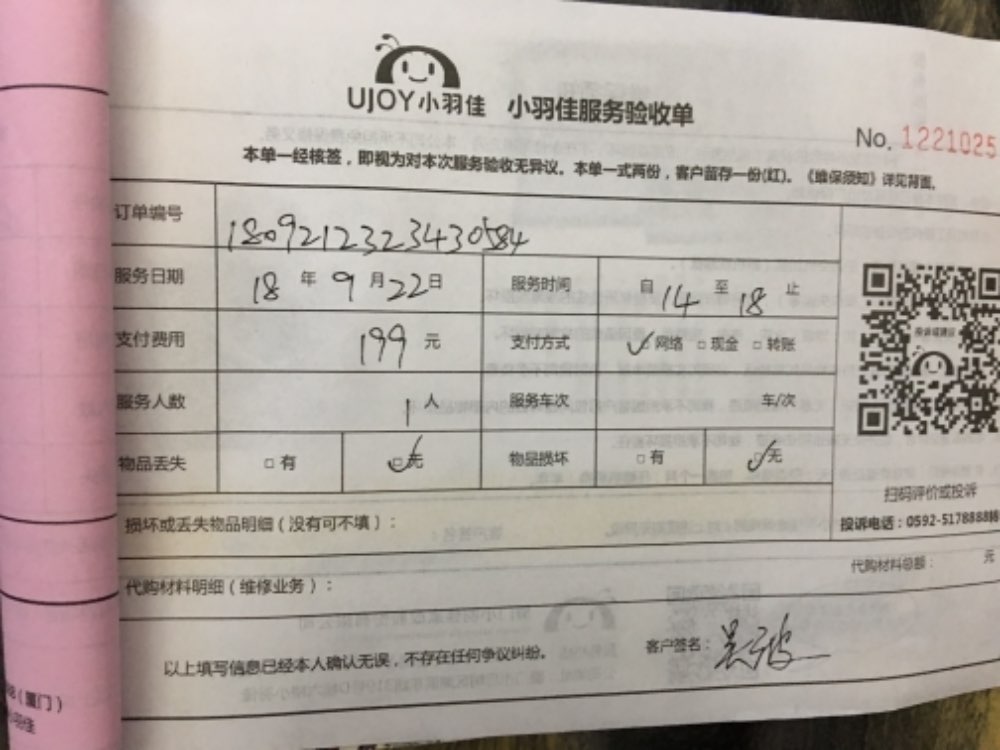 UJOY小羽佳 小羽佳服务验收单
No. 1221025
本单一经核签，即视为对本次服务验收无异议。本单一式两份，客户留存一份(红)。《维保须知》详见背面。
订单编号 1809212323430584
服务日期 18 年 9 月 22 日 服务时间 自 14 至 18 止
支付费用 199 元 支付方式 ✓网络 □现金 □转账
服务人数 1 人 服务车次 车/次
物品丢失 □有 ☑无 物品损坏 □有 ☑无
扫码评价或投诉
损坏或丢失物品明细（没有可不填）：
投诉电话：0592-5178888
代购材料明细（维修业务）： 代购材料总额： 元
以上填写信息已经本人确认无误，不存在任何争议纠纷。 客户签名：
（厦门）